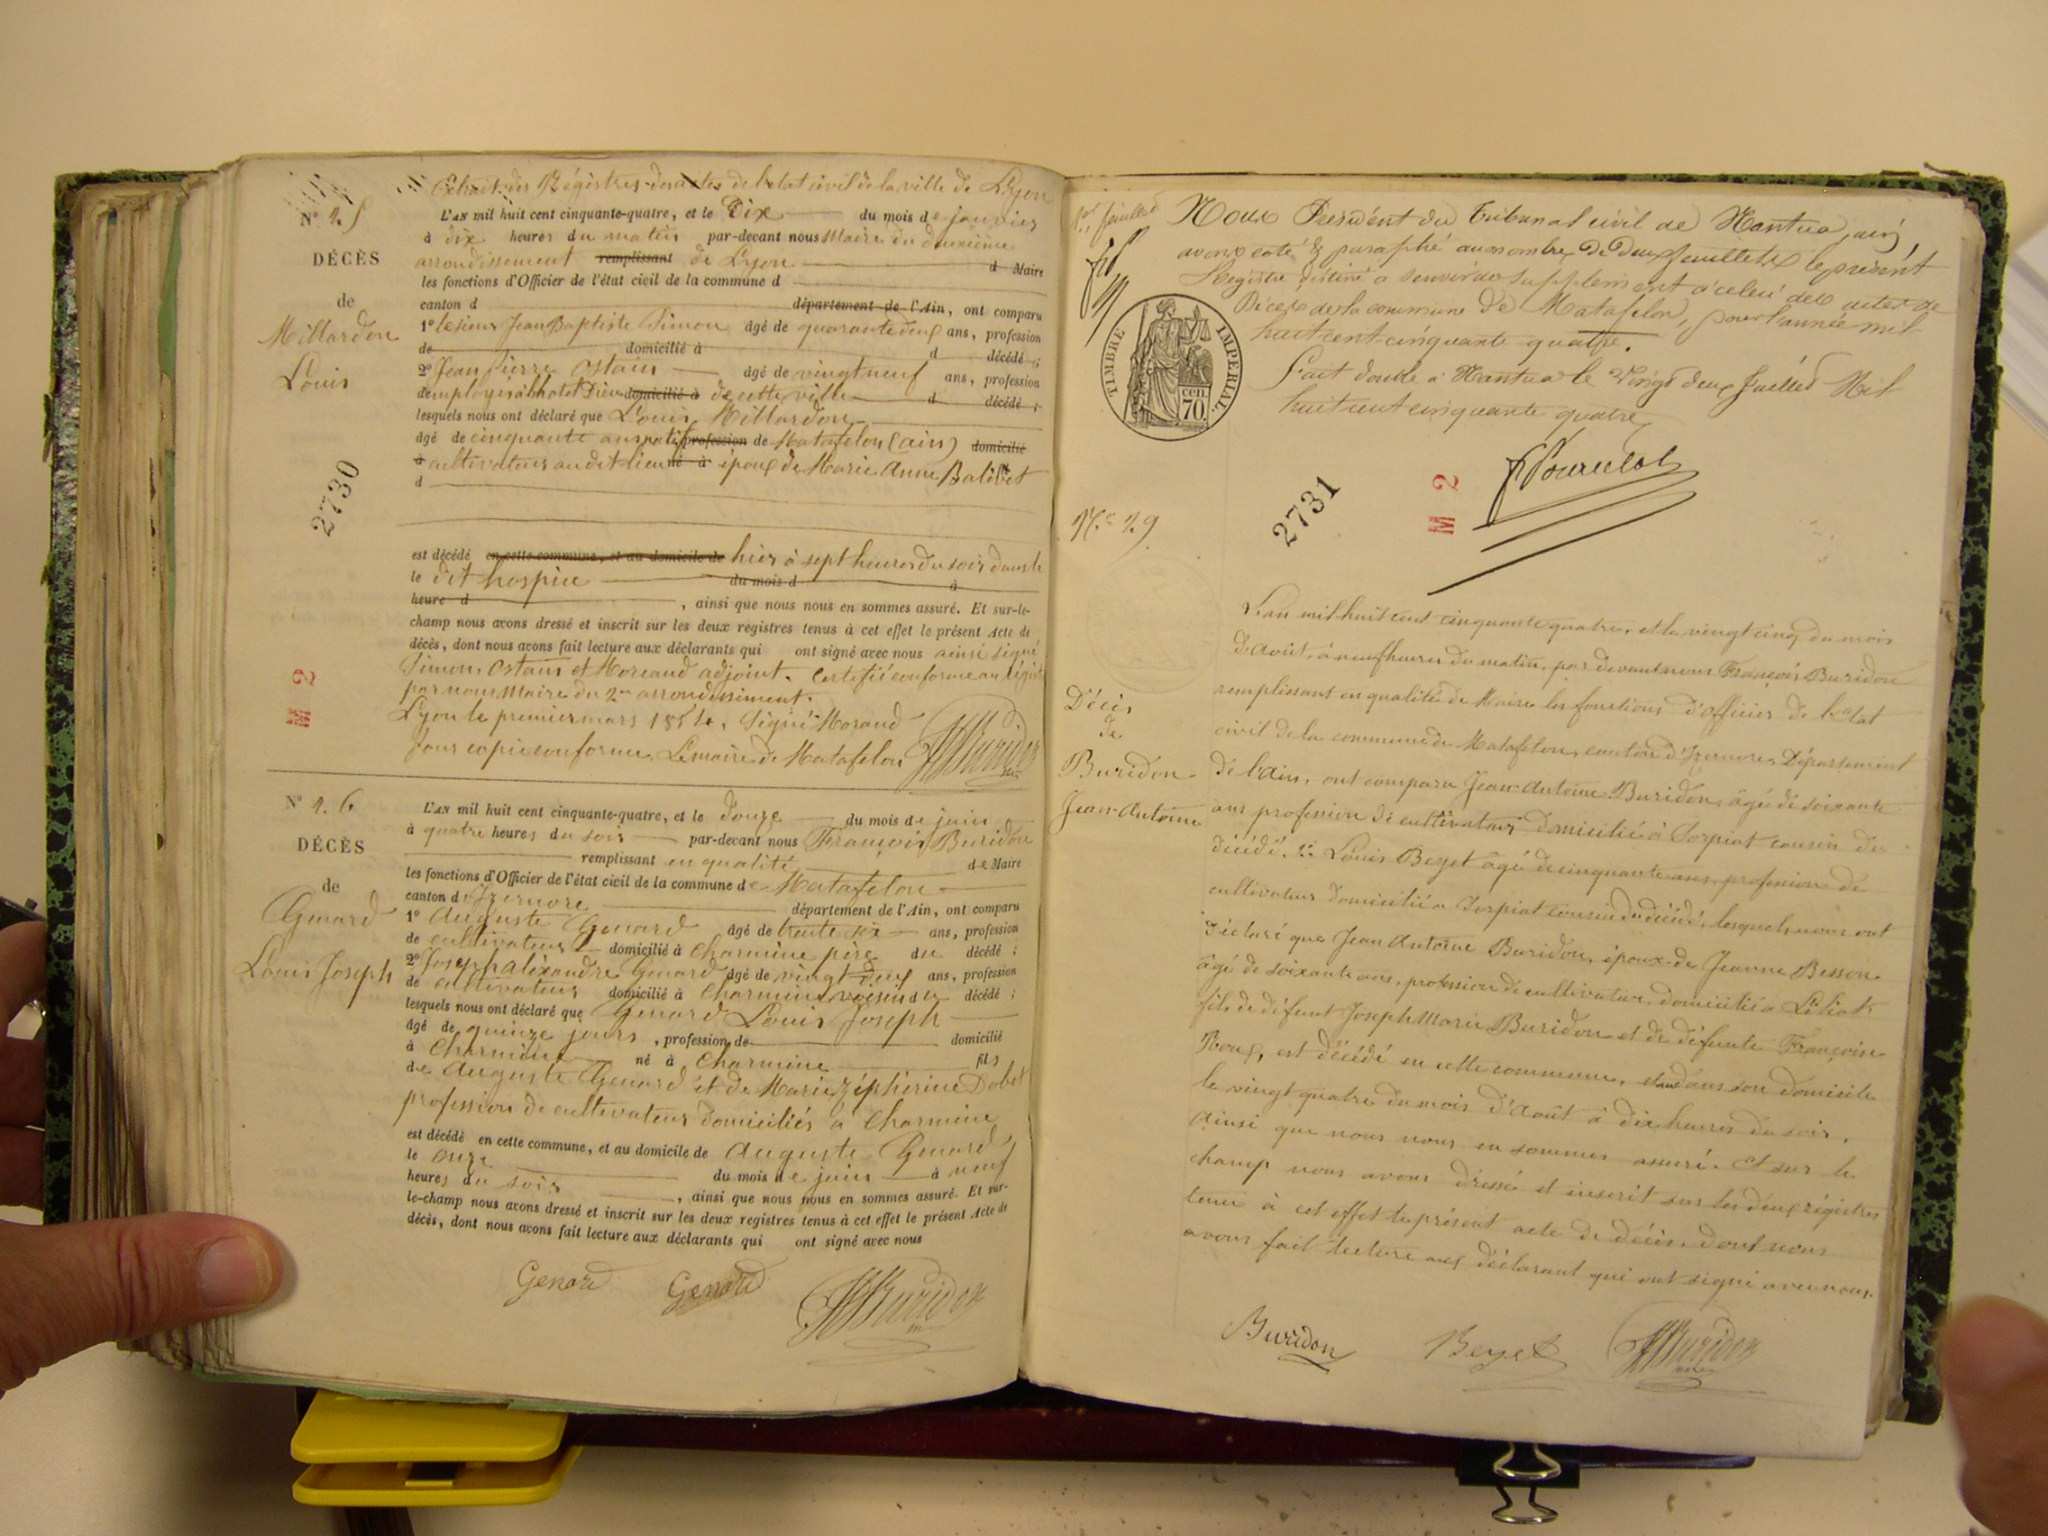 Extrait des Régistres des actes de l'état civil de la ville de Lyon
N° 15
L'AN mil huit cent cinquante-quatre, et le Dix du mois de janvier
à dix heures du matin par-devant nous Maire du deuxième
DÉCÈS
arrondissement remplissant de Lyon d Maire
les fonctions d'Officier de l'état civil de la commune d
de
canton d département de l'Ain, ont comparu
Millardon
1° le sieur Jean Baptiste Simon, âgé de quarante deux ans, profession
de domicilié à d décédé ;
Louis
2° Jean Pierre Ostain âgé de vingt neuf ans, profession
d'employés à l'hotel Dieu domicilié à de cette ville d décédé ;
lesquels nous ont déclaré que Louis Millardon
âgé de cinquante ans natif profession de Matafelon (ain) domicilié
à cultivateur au dit lieu né à époux de Marie Anne Balivet
d
2730
est décédé en cette commune, et au domicile de hier à sept heures du soir dans le
le dit hospice du mois d à
heure d , ainsi que nous nous en sommes assuré. Et sur-le-
champ nous avons dressé et inscrit sur les deux registres tenus à cet effet le présent Acte de
décès, dont nous avons fait lecture aux déclarants qui ont signé avec nous ainsi signé
M 2
Simon, Ostain et Moreaud adjoint. Certifié conforme au régist
par nous Maire du 2me arrondissement.
Lyon le premier mars 1854. Signé Morand
Pour copie conforme Le maire de Matafelon
Buridon
N° 16
L'AN mil huit cent cinquante-quatre, et le douze du mois de juin
à quatre heures du soir par-devant nous François Buridon
DÉCÈS
remplissant en qualité de Maire
les fonctions d'Officier de l'état civil de la commune de Matafelon
de
canton d'Izernore département de l'Ain, ont comparu
Genard
1° Auguste Genard âgé de trente six ans, profession
de cultivateur domicilié à Charmine père du décédé ;
Louis Joseph
2° Joseph alixandre Genard âgé de vingt deux ans, profession
de cultivateur domicilié à Charmine voisin du décédé ;
lesquels nous ont déclaré que Genard Louis Joseph
âgé de quinze jours , profession de domicilié
à Charmine né à Charmine fils
de Auguste Genard et de Marie Zéphérine Dobet
profession de cultivateur domiciliés à Charmine
est décédé en cette commune, et au domicile de Auguste Genard
le onze du mois de juin à neuf
heures du soir , ainsi que nous nous en sommes assuré. Et sur-
le-champ nous avons dressé et inscrit sur les deux registres tenus à cet effet le présent Acte de
décès, dont nous avons fait lecture aux déclarants qui ont signé avec nous
Genard Genard Buridon
1er feuillet
Nous Président du Tribunal civil de Nantua, ain,
avons coté & paraphé au nombre de deux feuillets le présent
Registre destiné à servir de supplément à celui des actes de
Décès de la commune de Matafelon, pour l'année mil
huit cent cinquante quatre.
Fait double à Nantua le vingt deux juillet Mil
huit cent cinquante quatre
TIMBRE IMPERIAL.
cen. 70.
2731
M 2
N° 19
L'an mil huit cent cinquante quatre, et le vingt cinq du mois
de Août, à neuf heures du matin, par devant nous François Buridon
remplissant en qualité de Maire les fonctions d'officier de l'état
Décès
civil de la commune de Matafelon, canton d'Izernore, Département
de
Buridon
de l'ain, ont comparu Jean-Antoine Buridon, âgé de soixante
Jean-Antoine
ans profession de cultivateur domicilié à Corpiat cousin du
décédé. 2° Louis Beyet âgé de cinquante ans, profession de
cultivateur domicilié à Corpiat cousin du décédé, lesquels nous ont
déclaré que Jean Antoine Buridon, époux de Jeanne Besson
âgé de soixante ans, profession de cultivateur, domicilié à
fils de défunt Joseph Marie Buridon et de défunte Françoise
Roux, est décédé en cette commune, et dans son domicile
le vingt quatre du mois d'Août à dix heures du soir,
Ainsi que nous nous en sommes assuré. Et sur le
champ nous avons dressé et inscrit sur les deux régistres
tenus à cet effet le présent acte de décès, dont nous
avons fait lecture aux déclarant qui ont signé avec nous.
Buridon Beyet Buridon